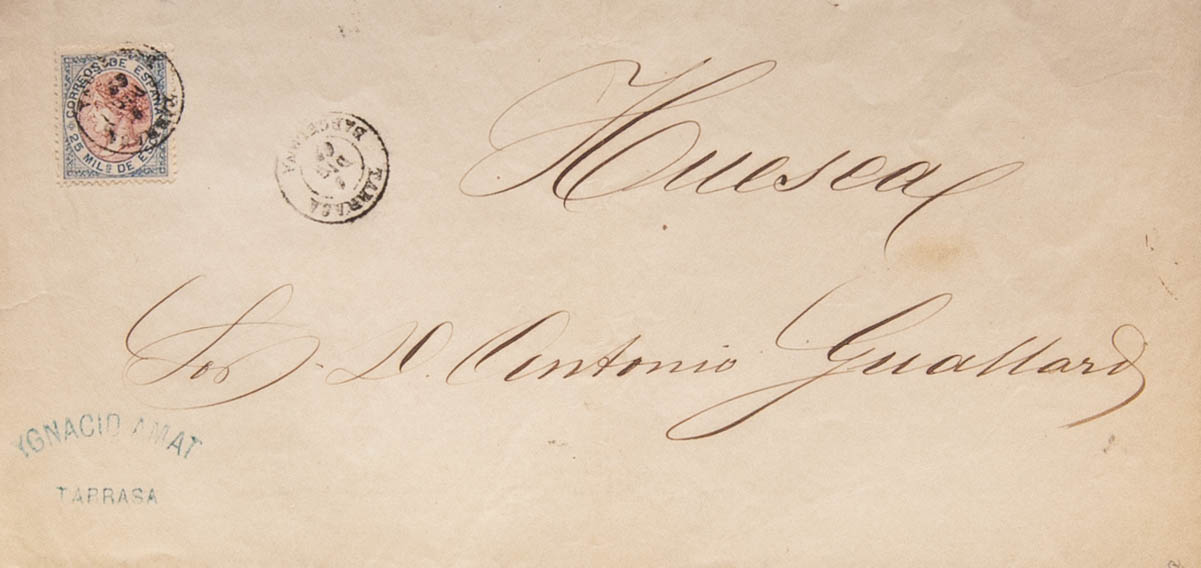 CORREOS DE ESPAÑA
25 MILS DE ESC
TARRASA
BARCELONA
Huesca
Sor. D. Antonio Guallard
YGNACIO AMAT
TARRASA